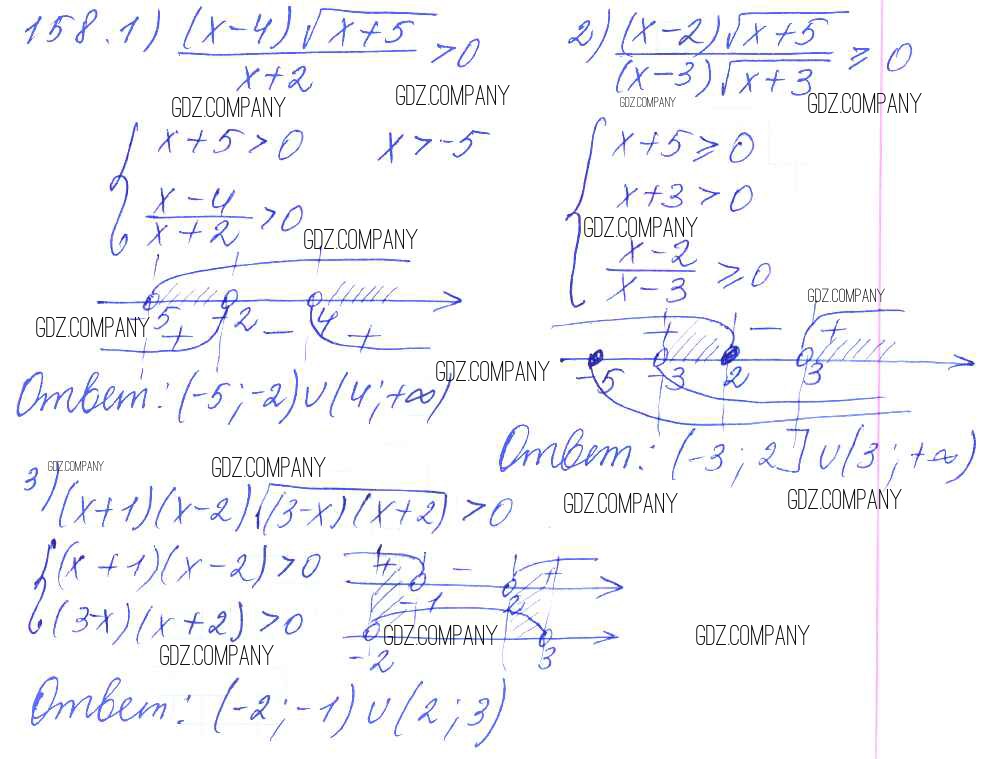 158. 1) (x-4)√(x+5) / (x+2) > 0
GDZ.COMPANY
GDZ.COMPANY
{ x+5 > 0    x > -5
(x-4)/(x+2) > 0
GDZ.COMPANY
-5 -2 4
+ − +
GDZ.COMPANY
Ответ: (-5; -2) ∪ (4; +∞)
2) (x-2)√(x+5) / (x-3)√(x+3) ≥ 0
GDZ.COMPANY
GDZ.COMPANY
{ x+5 ≥ 0
x+3 > 0
GDZ.COMPANY
(x-2)/(x-3) ≥ 0
GDZ.COMPANY
+ − +
-5 -3 2 3
GDZ.COMPANY
Ответ: (-3; 2] ∪ (3; +∞)
GDZ.COMPANY
GDZ.COMPANY
GDZ.COMPANY
GDZ.COMPANY
3) (x+1)(x-2)√((3-x)(x+2)) > 0
{ (x+1)(x-2) > 0
+ − +
-1 2
(3-x)(x+2) > 0
-2 3
GDZ.COMPANY
GDZ.COMPANY
GDZ.COMPANY
Ответ: (-2; -1) ∪ (2; 3)